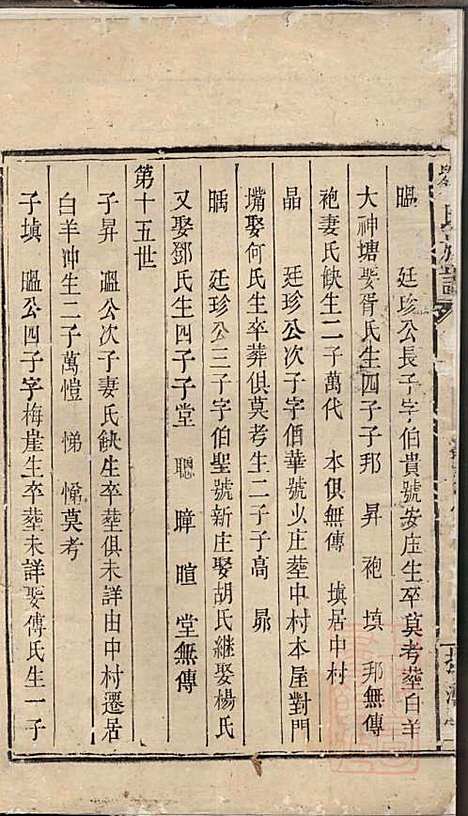 氏族譜
𥈭 廷珍公長子字伯貴號安庄生卒莫考塟白羊
大神塘娶胥氏生四子子邦 昇 袍 填 邦無傳
袍妻氏缺生二子萬代 本俱無傳 填居中村
晶 廷珍公次子字偤華號少庄塟中村本屋對門
嘴娶何氏生卒葬俱莫考生二子子高 昴
廷珍公三子字伯聖號新庄娶胡氏継娶楊氏
又娶鄧氏生四子子堂 聰 暲 暄 堂無傳
第十五世
子昇 公次子妻氏缺生卒塟俱未詳由中村遷居
白羊冲生二子萬愷 悌 愉莫考
子填 公四子字梅崖生卒塟未詳娶傅氏生一子